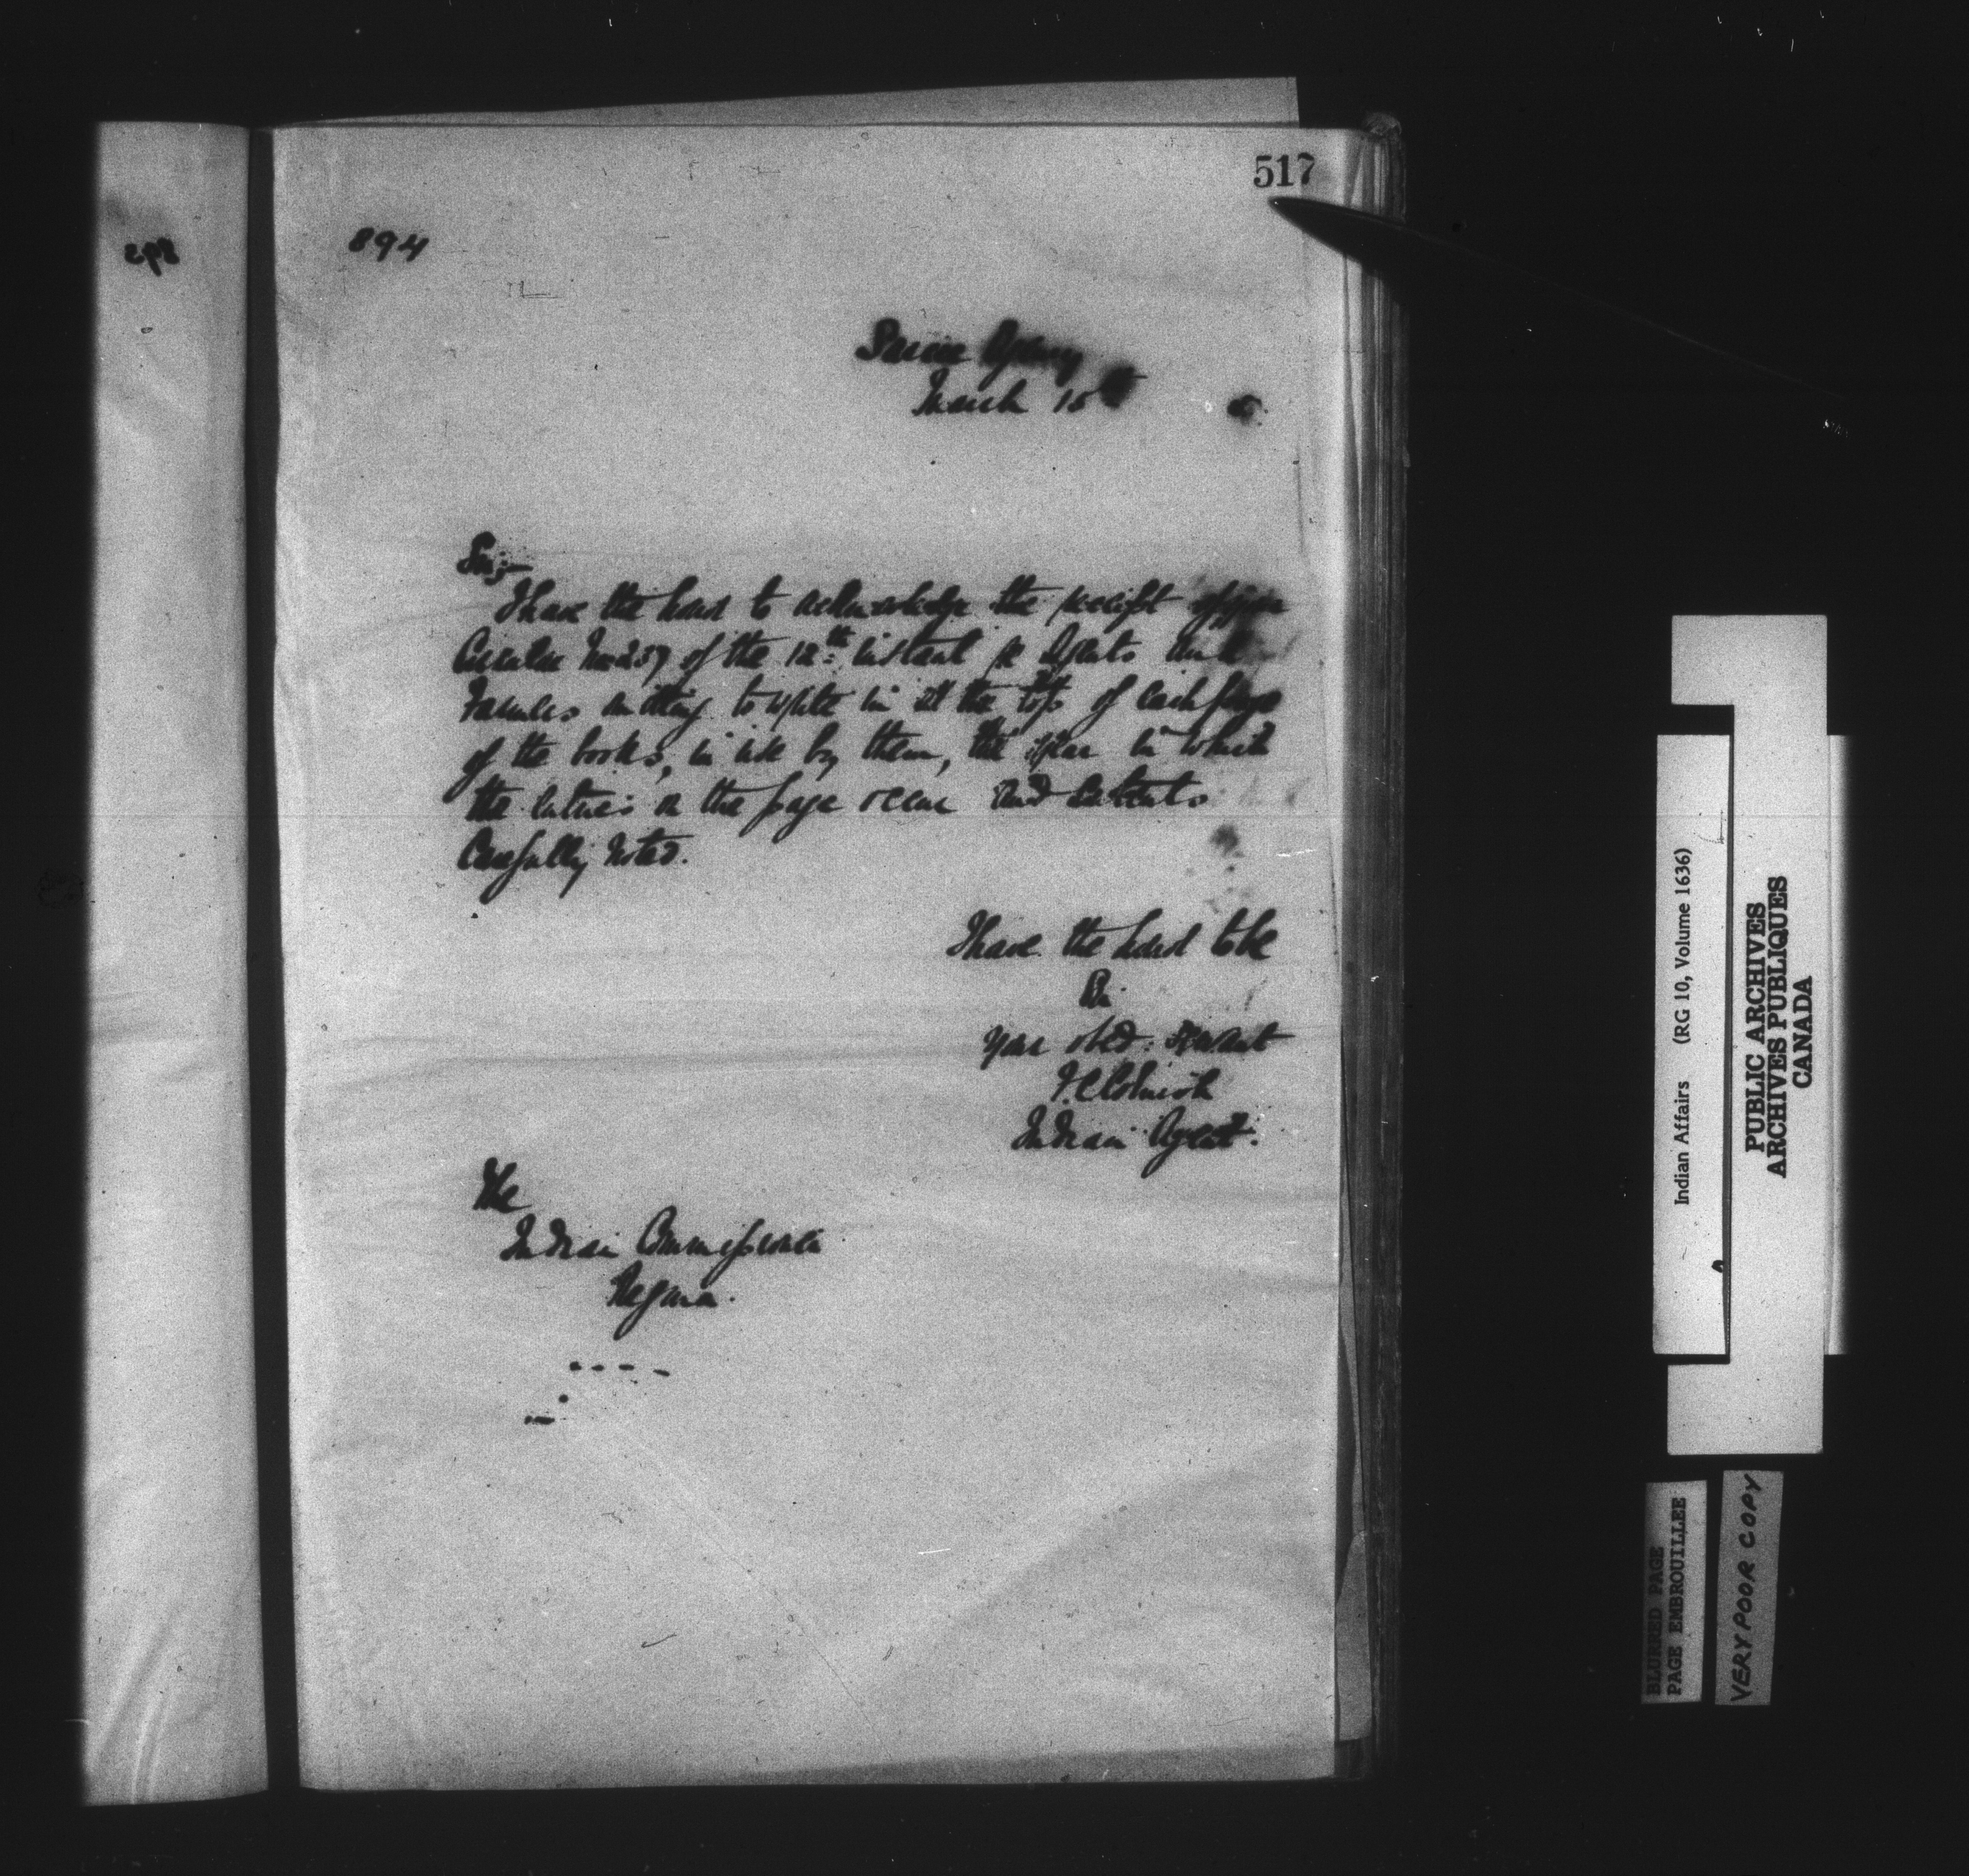 517
894
895
Sarcee Agency
March 15th
Sir,
I have the honor to acknowledge the receipt of your
Circular No 237 of the 12th instant re Agents and
Farmers omitting to write in at the top of each page
of the books, in use by them, the year in which
the entries on the page occur and contents
Carefully noted.
I have the honor to be
Sir
Your obed: servant
Indian Agent.
The
Indian Commissioner
Regina.
Indian Affairs (RG 10, Volume 1636)
PUBLIC ARCHIVES
ARCHIVES PUBLIQUES
CANADA
BLURRED PAGE
PAGE EMBROUILLEE
VERY POOR COPY